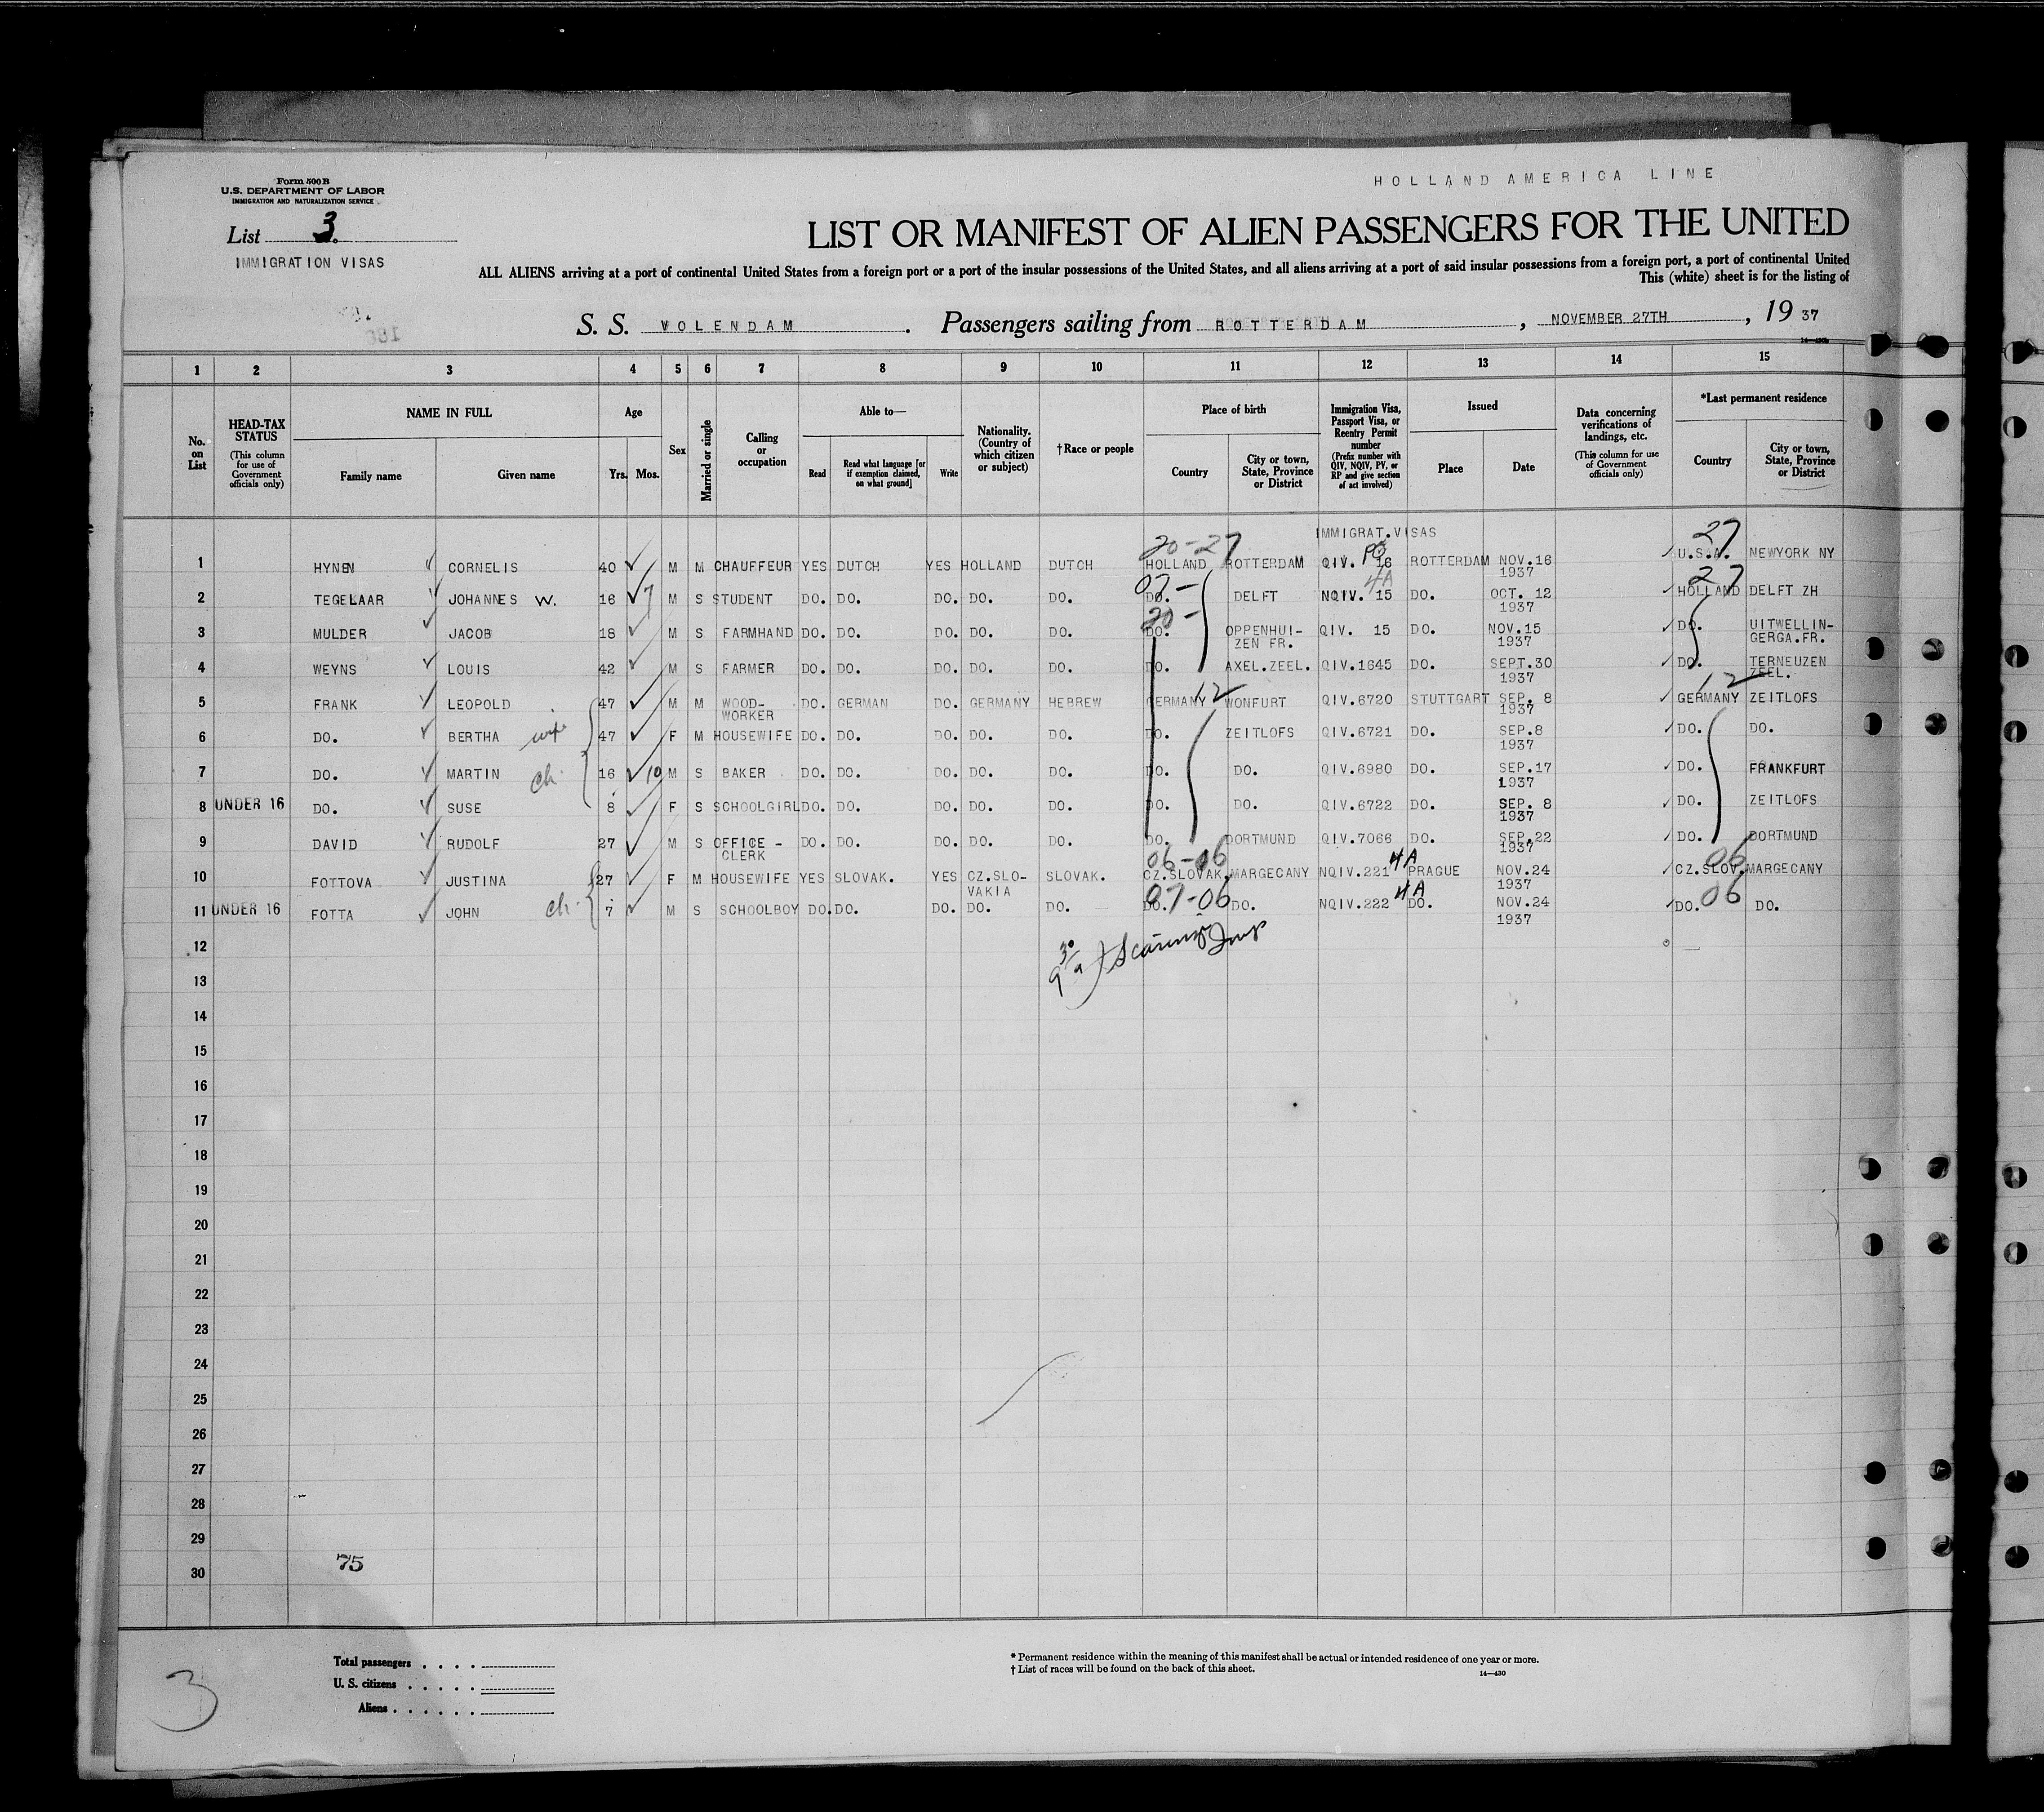 HOLLAND AMERICA LINE
Form 500 B
U.S. DEPARTMENT OF LABOR
IMMIGRATION AND NATURALIZATION SERVICE
List 3.
IMMIGRATION VISAS
LIST OR MANIFEST OF ALIEN PASSENGERS FOR THE UNITED
ALL ALIENS arriving at a port of continental United States from a foreign port or a port of the insular possessions of the United States, and all aliens arriving at a port of said insular possessions from a foreign port, a port of continental United
This (white) sheet is for the listing of
S. S. VOLENDAM . Passengers sailing from ROTTERDAM , NOVEMBER 27TH , 19 37
1 2 3 4 5 6 7 8 9 10 11 12 13 14 15
No. on List
HEAD-TAX STATUS (This column for use of Government officials only)
NAME IN FULL
Family name Given name
Age
Yrs. Mos.
Sex
Married or single
Calling or occupation
Able to—
Read Read what language [or if exemption claimed, on what ground] Write
Nationality. (Country of which citizen or subject)
†Race or people
Place of birth
Country City or town, State, Province or District
Immigration Visa, Passport Visa, or Reentry Permit number (Prefix number with QIV, NQIV, PV, or RP and give section of act involved)
Issued
Place Date
Data concerning verifications of landings, etc. (This column for use of Government officials only)
*Last permanent residence
Country City or town, State, Province or District
IMMIGRAT.VISAS
20-27 27
1 HYNEN CORNELIS 40 M M CHAUFFEUR YES DUTCH YES HOLLAND DUTCH HOLLAND ROTTERDAM QIV. 16 ROTTERDAM NOV.16 1937 U.S.A. NEWYORK NY
07- 4A 27
2 TEGELAAR JOHANNES W. 16 7 M S STUDENT DO. DO. DO. DO. DO. DO. DELFT NQIV. 15 DO. OCT. 12 1937 HOLLAND DELFT ZH
20-
3 MULDER JACOB 18 M S FARMHAND DO. DO. DO. DO. DO. DO. OPPENHUI-ZEN FR. QIV. 15 DO. NOV.15 1937 DO. UITWELLIN-GERGA.FR.
4 WEYNS LOUIS 42 M S FARMER DO. DO. DO. DO. DO. DO. AXEL.ZEEL. QIV.1645 DO. SEPT.30 1937 DO. TERNEUZEN ZEEL.
12 12
5 FRANK LEOPOLD 47 M M WOOD-WORKER DO. GERMAN DO. GERMANY HEBREW GERMANY WONFURT QIV.6720 STUTTGART SEP. 8 1937 GERMANY ZEITLOFS
6 DO. BERTHA wife 47 F M HOUSEWIFE DO. DO. DO. DO. DO. DO. ZEITLOFS QIV.6721 DO. SEP.8 1937 DO. DO.
7 DO. MARTIN ch. 16 10 M S BAKER DO. DO. DO. DO. DO. DO. DO. QIV.6980 DO. SEP.17 1937 DO. FRANKFURT
8 UNDER 16 DO. SUSE 8 F S SCHOOLGIRL DO. DO. DO. DO. DO. DO. DO. QIV.6722 DO. SEP. 8 1937 DO. ZEITLOFS
9 DAVID RUDOLF 27 M S OFFICE-CLERK DO. DO. DO. DO. DO. DO. DORTMUND QIV.7066 DO. SEP.22 1937 DO. DORTMUND
06-06 4A 06
10 FOTTOVA JUSTINA 27 F M HOUSEWIFE YES SLOVAK. YES CZ.SLO-VAKIA SLOVAK. CZ.SLOVAK. MARGECANY NQIV.221 PRAGUE NOV.24 1937 CZ.SLOV. MARGECANY
07-06 4A 06
11 UNDER 16 FOTTA JOHN ch. 7 M S SCHOOLBOY DO. DO. DO. DO. DO. DO. DO. NQIV.222 DO. NOV.24 1937 DO. DO.
12
13
14
15
16
17
18
19
20
21
22
23
24
25
26
27
28
29
75
30
Total passengers
U. S. citizens
Aliens
3
* Permanent residence within the meaning of this manifest shall be actual or intended residence of one year or more.
† List of races will be found on the back of this sheet.
14—430